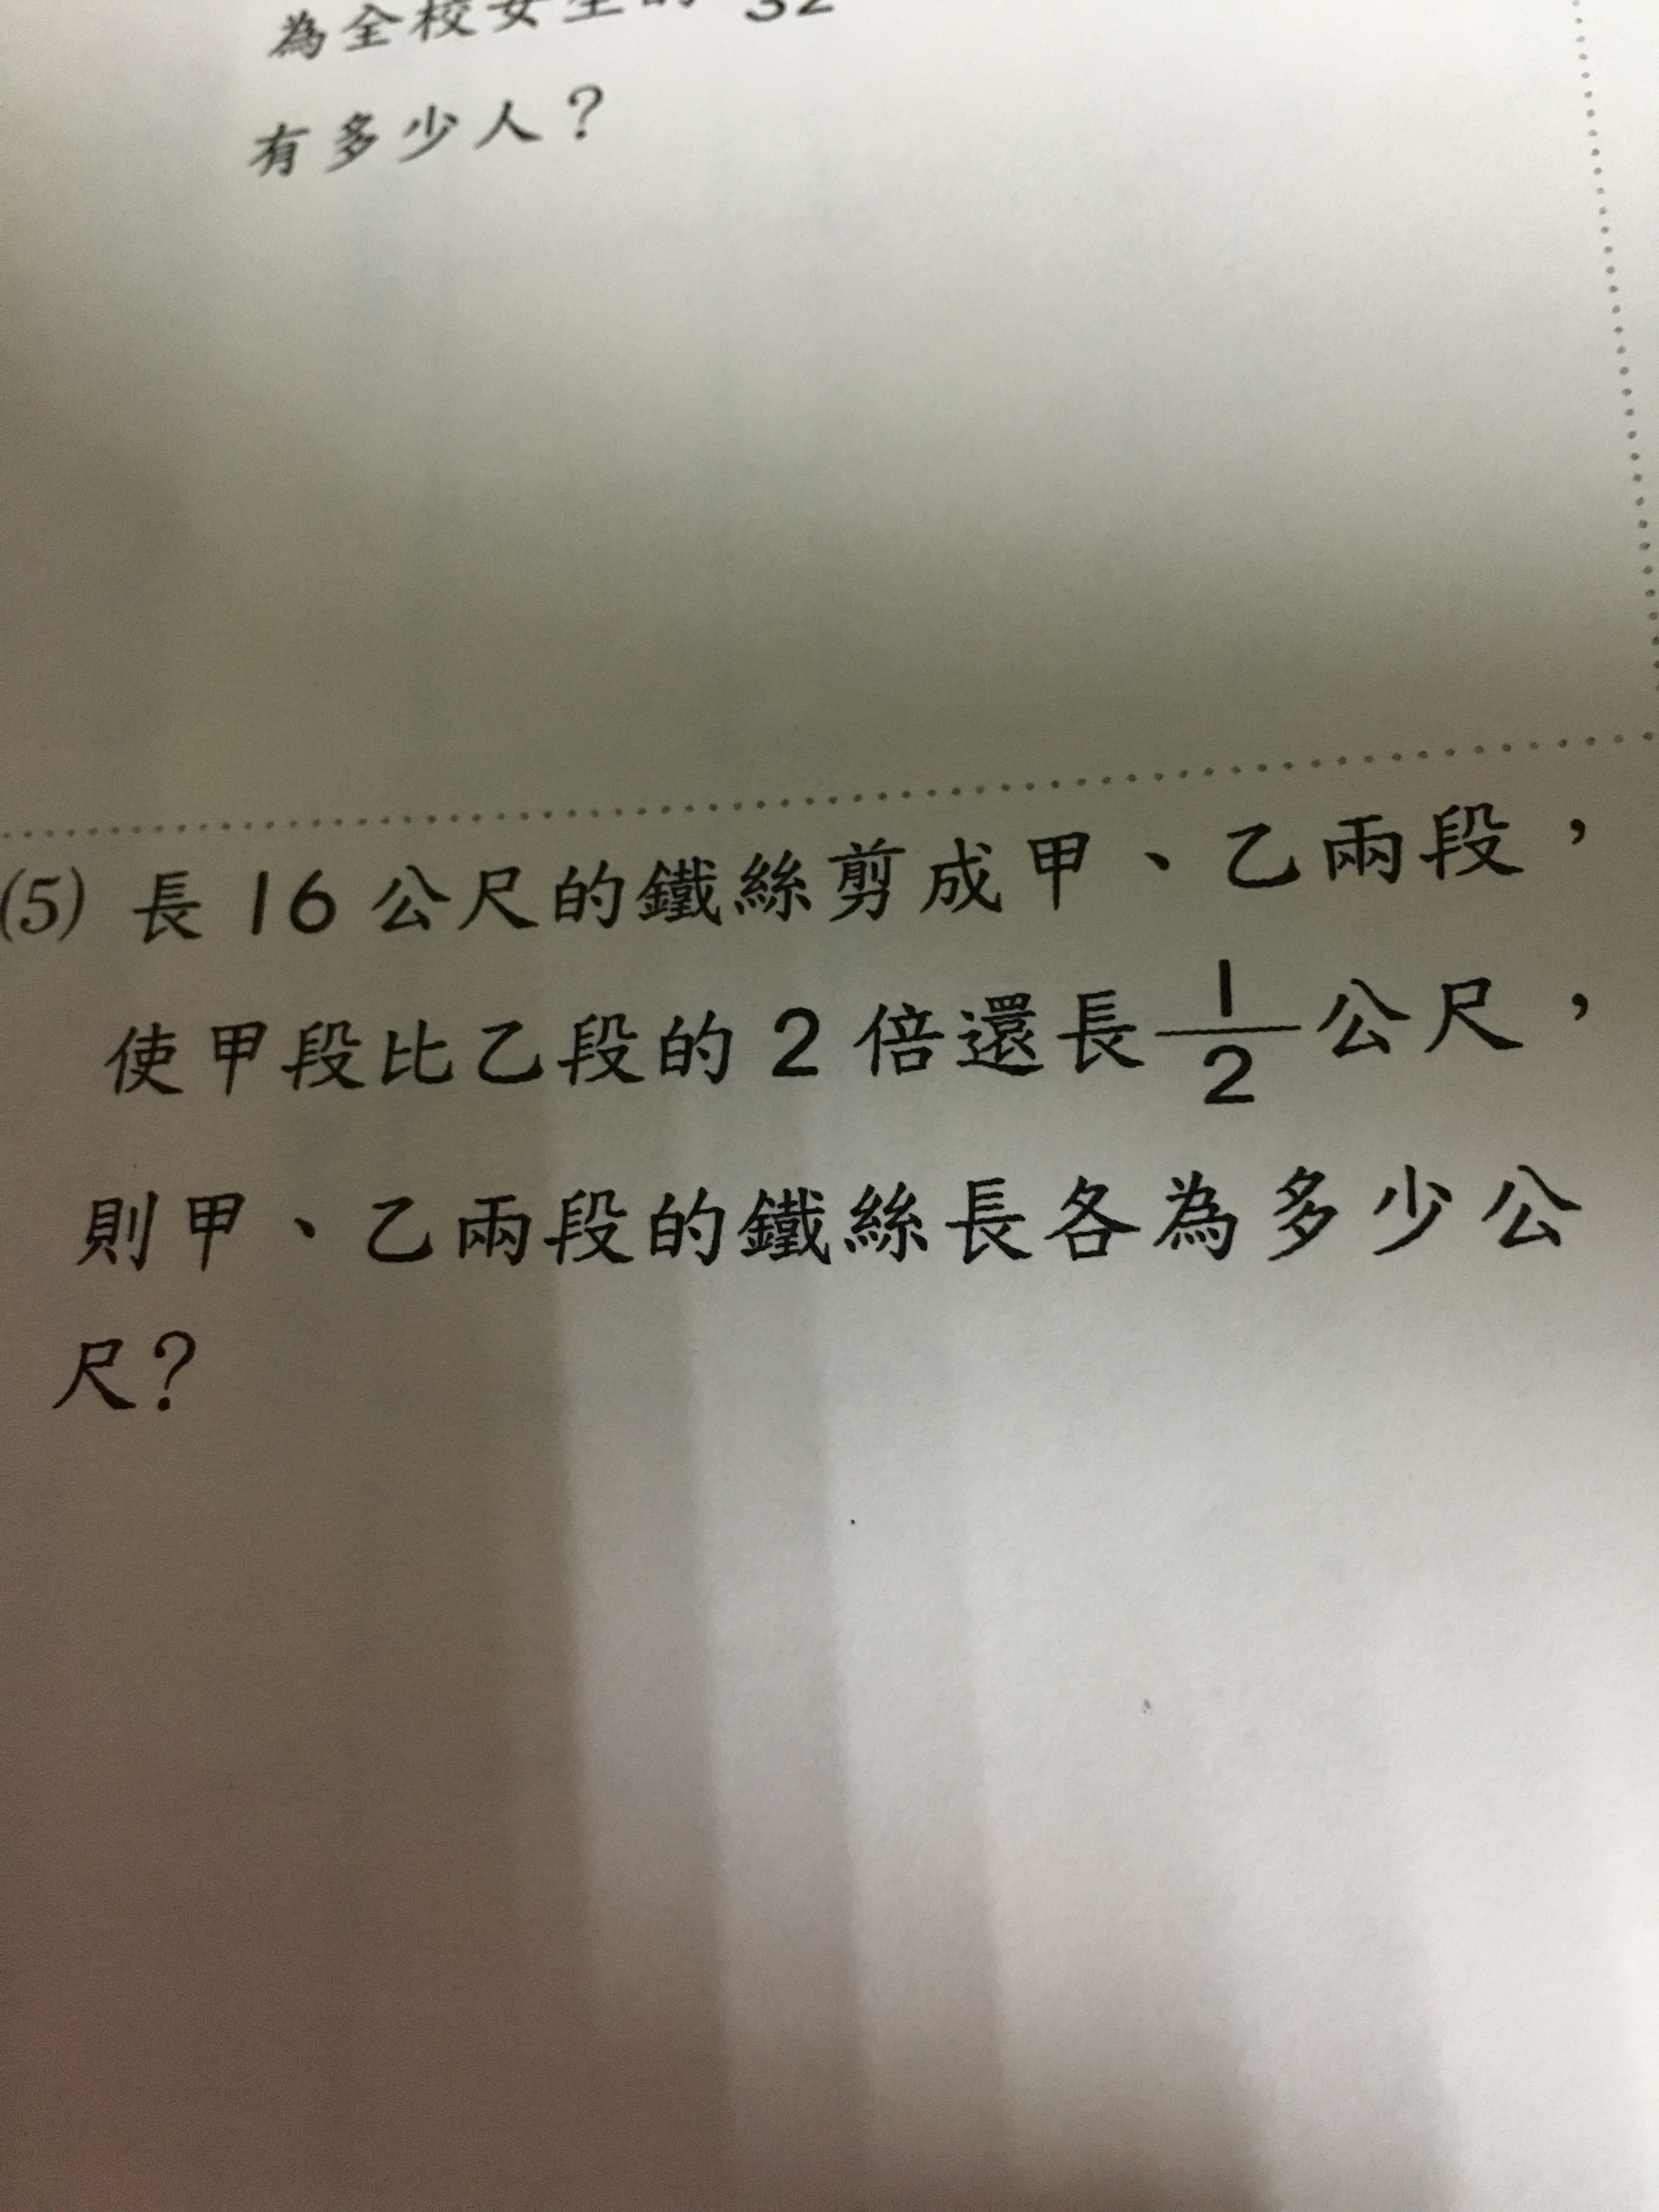 為全校女生的 32
有多少人？
(5) 長 16 公尺的鐵絲剪成甲、乙兩段，
使甲段比乙段的 2 倍還長 1/2 公尺，
則甲、乙兩段的鐵絲長各為多少公
尺？